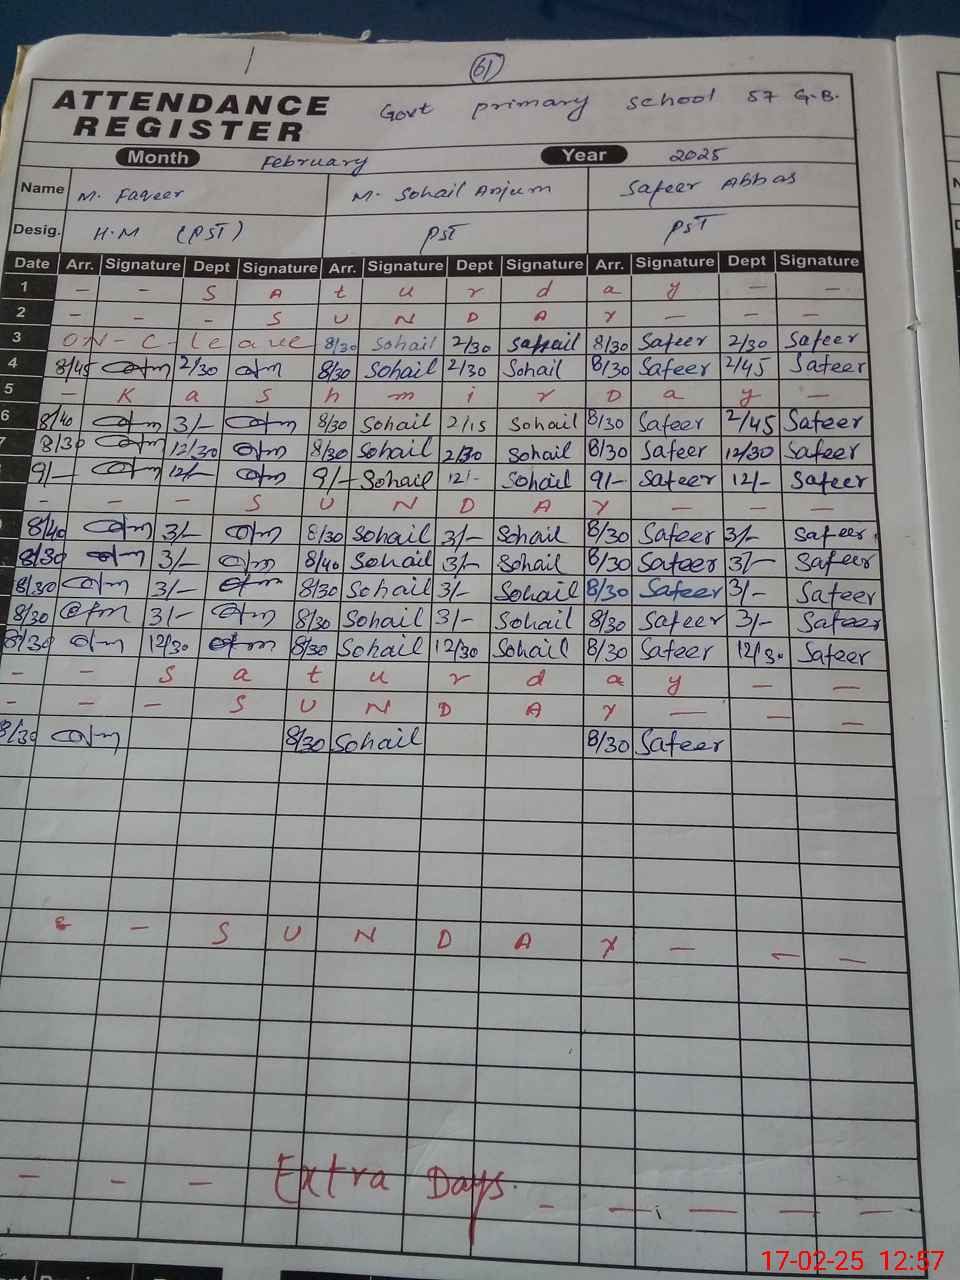 61
ATTENDANCE REGISTER Govt primary school 57 G.B.
Month February Year 2025
Name M. Faqeer M. Sohail Anjum Safeer Abbas
Desig. H.M (PST) PST PST
Date Arr. Signature Dept Signature Arr. Signature Dept Signature Arr. Signature Dept Signature
1 - - S A t u r d a y - -
2 - - - S U N D A Y - - -
3 ON - C - leave 8/30 Sohail 2/30 Sohail 8/30 Safeer 2/30 Safeer
4 8/45 2/30 8/30 Sohail 2/30 Sohail 8/30 Safeer 2/45 Safeer
5 - K a S h m i r D a y -
6 8/40 3/- 8/30 Sohail 2/15 Sohail 8/30 Safeer 2/45 Safeer
7 8/30 12/30 8/30 Sohail 2/30 Sohail 8/30 Safeer 12/30 Safeer
9/- 12/- 9/- Sohail 12/- Sohail 9/- Safeer 12/- Safeer
- - - S U N D A Y - - -
8/40 3/- 8/30 Sohail 3/- Sohail 8/30 Safeer 3/- Safeer
8/30 3/- 8/40 Sohail 3/- Sohail 8/30 Safeer 3/- Safeer
8/30 3/- 8/30 Sohail 3/- Sohail 8/30 Safeer 3/- Safeer
8/30 3/- 8/30 Sohail 3/- Sohail 8/30 Safeer 3/- Safeer
8/30 12/30 8/30 Sohail 12/30 Sohail 8/30 Safeer 12/30 Safeer
- - S a t u r d a y - -
- - - S U N D A Y - - -
8/30 8/30 Sohail 8/30 Safeer
- S U N D A Y - - -
- - - Extra Days. - - - - -
17-02-25 12:57